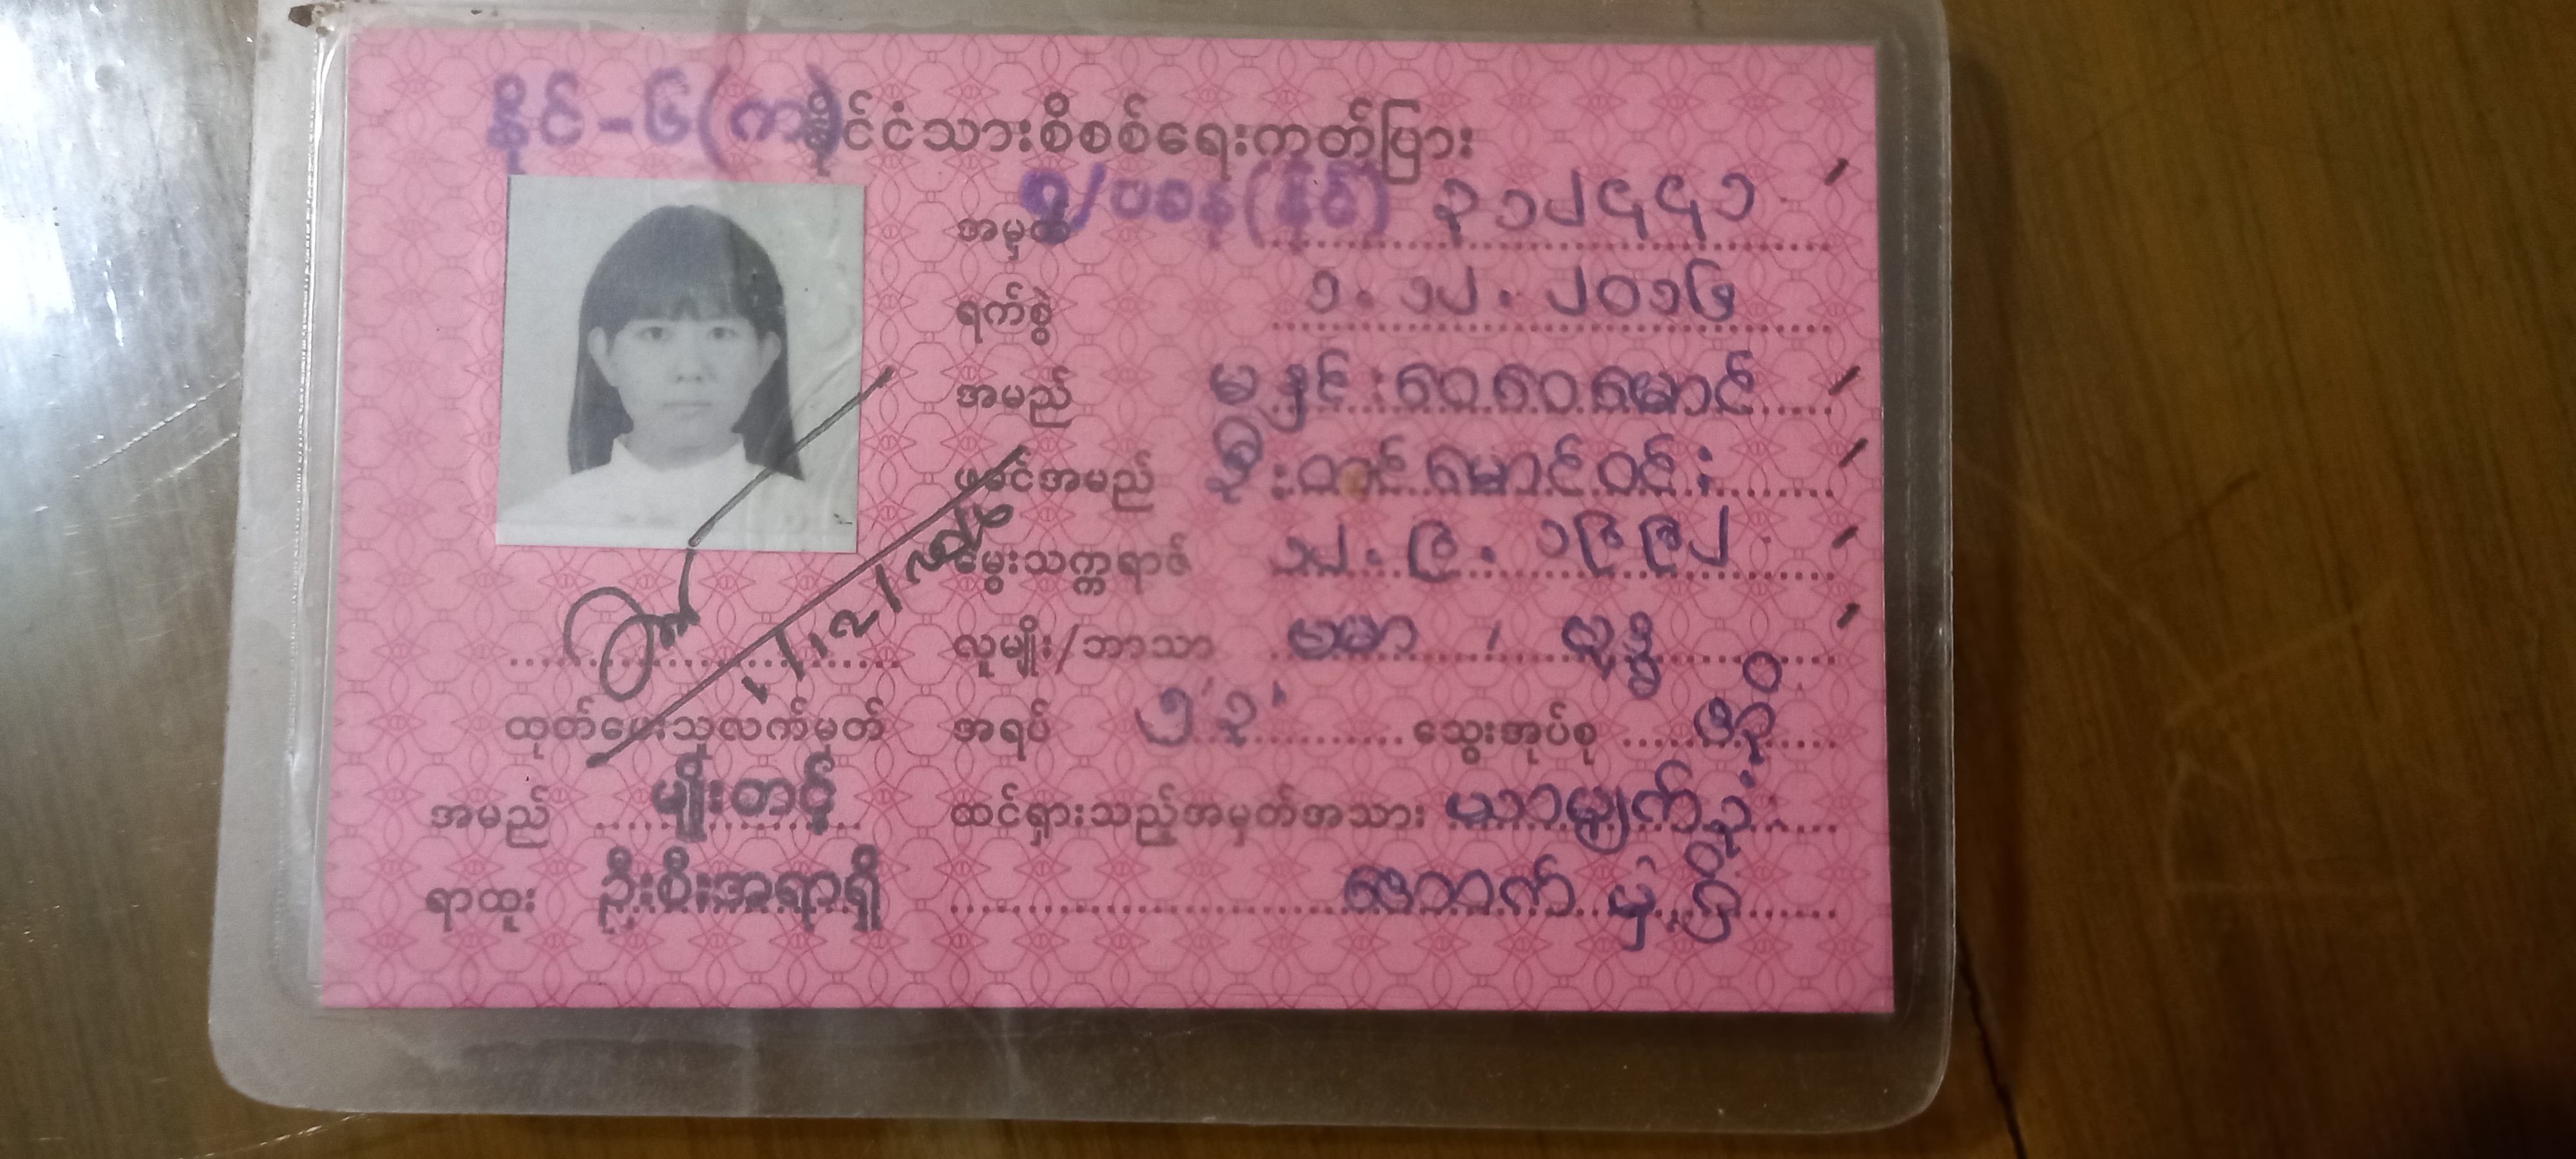 နိုင်-၆(က)
နိုင်ငံသားစိစစ်ရေးကတ်ပြား
အမှတ် ၅၁၂၄၄၁
ရက်စွဲ ၁.၁၂.၂၀၁၆
အမည် မနှင်းဝေဝေမောင်
ဖခင်အမည် ဦးတင်မောင်ဝင်း
မွေးသက္ကရာဇ် ၁၂.၉.၁၉၉၂
လူမျိုး/ဘာသာ ဗမာ ၊ ဗုဒ္ဓ
အရပ် ၅'၃" သွေးအုပ်စု အို
ထင်ရှားသည့်အမှတ်အသား ယာမျက်ဥ်း
အောက် မှဲ့ရှိ
1/12/2016
ထုတ်ပေးသူလက်မှတ်
အမည် မျိုးတင့်
ရာထူး ဦးစီးအရာရှိ